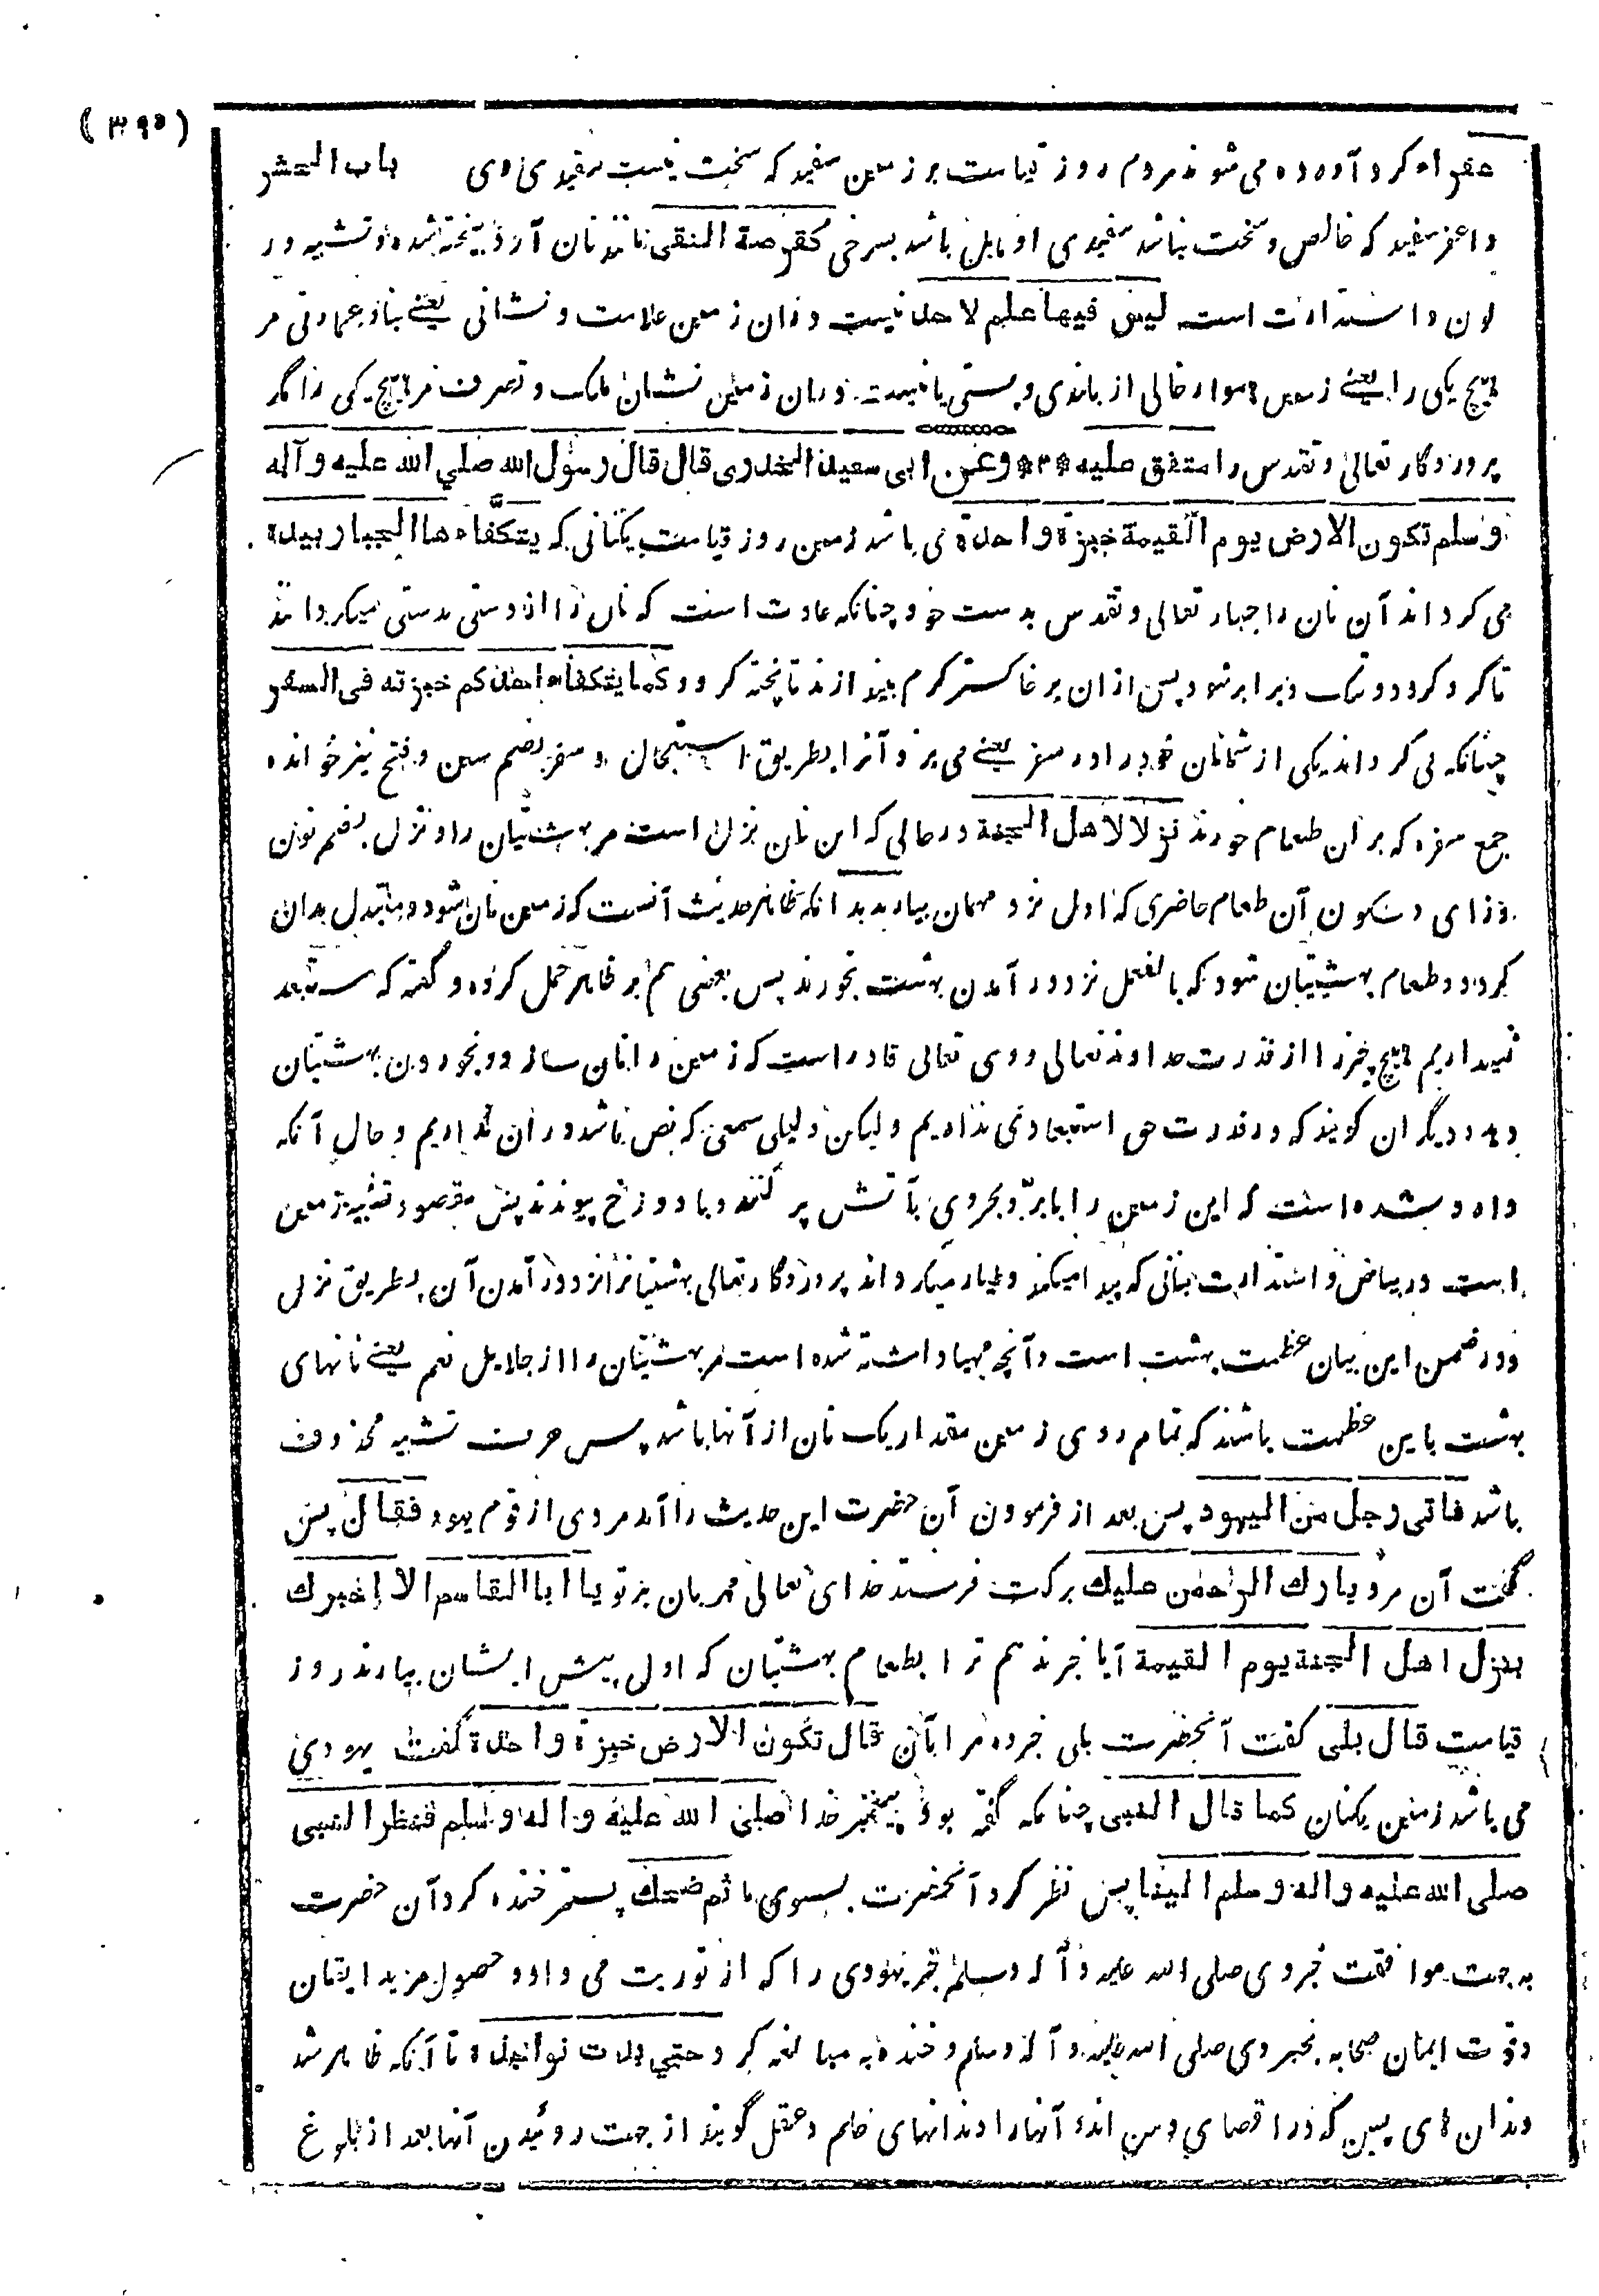 (۳۹۵)
باب الحشر
عفراء گرد آورده می شوند مردم روز قیامت بر زمین سفید که سخت نیست سفیدی وی
و اعفر سفید که خالص و سخت نباشد سفیدی او مایل باشد بسرخی کقرصة النقی مانند نان آرد بیخته شده و تشبیه در
لون و استدارت است لیس فیها علم لاحد نیست در ان زمین علامت و نشانی یعنے بنا و عمارتی مر
هیچ یکی را یعنے زمین هموار خالی از بلندی و پستی یا نیست در ان زمین نشان ملک و تصرف مر هیچ یکی را مگر
پروردگار تعالی و تقدس را متفق علیه *۳* وعن ابی سعید الخدری قال قال رسول الله صلی الله علیه وآله
وسلم تکون الارض یوم القیمة خبزة واحدة می باشد زمین روز قیامت یکنانی که یتکفّاءها الجبار بیده
می گرداند آن نان را جبار تعالی و تقدس بدست خود چنانکه عادت است که نان را از دستی بدستی میگردانند
تا گرد گردد و تنک و برابر شود پس از ان بر خاکستر گرم می اندازند تا پخته گردد کما یتکفاء احدکم خبزته فی السفر
چنانکه می گرداند یکی از شمایان خود را در سفر یعنے می پزد آنرا بطریق استعجال و سفر بضم سین و فتح نیز خوانده
جمع سفره که بر ان طعام خورند نزلا لاهل الجنة در حالی که این نان نزل است مر بهشتیان را و نزل بضم نون
و زای و سکون آن طعام حاضری که اول نزد مهمان بیارند بدانکه ظاهر حدیث آنست که زمین نان شود و متبدل بدان
گردد و طعام بهشتیان شود که بالفعل نزد در آمدن بهشت بخورند پس بعضی هم بر ظاهر حمل کرده و گفته که مستبعد
نمیداریم هیچ چیز را از قدرت خداوند تعالی و وی تعالی قادر است که زمین را نان سازد و بخوردن بهشتیان
دهد و دیگران گویند که در قدرت حق استبعادی نداریم ولیکن دلیلی سمعی که نص باشد در ان نداریم و حال آنکه
وارد شده است که این زمین را با برّ و بحر وی بآتش پر کنند و با دوزخ پیوندند پس مقصود تشبیه زمین
است در بیاض و استدارت بنانی که پیدا میکند و طیار میگرداند پروردگار تعالی بهشتیانرا نزد در آمدن آن بطریق نزل
و در ضمن این بیان عظمت بهشت است و آنچه مهیا داشته شده است مر بهشتیان را از جلایل نعم یعنے نانهای
بهشت باین عظمت باشند که تمام روی زمین مقدار یک نان از آنها باشد پس حرف تشبیه محذوف
باشد فاتی رجل من الیهود پس بعد از فرمودن آن حضرت این حدیث را آمد مردی از قوم یهود فقال پس
گفت آن مرد بارك الرحمن علیك برکت فرستد خدای تعالی مهربان بر تو یا ابا القاسم الا اخبرك
بنزل اهل الجنة یوم القیمة آیا خبر ندهم ترا بطعام بهشتیان که اول پیش ایشان بیارند روز
قیامت قال بلی گفت آنحضرت بلی خبر ده مرا بآن قال تکون الارض خبزة واحدة گفت یهودی
می باشد زمین یکنان کما قال النبی چنانکه گفته بود پیغمبر خدا صلی الله علیه وآله وسلم فنظر النبی
صلی الله علیه وآله وسلم الینا پس نظر کرد آنحضرت بسوی ما ثم ضحك پستر خنده کرد آن حضرت
به جهت موافقت خبر وی صلی الله علیه وآله وسلم خبر یهودی را که از توریت می داد و حصول مزید ایقان
و قوت ایمان صحابه بخبر وی صلی الله علیه وآله وسلم و خنده به مبالغه کرد حتی بدت نواجذه تا آنکه ظاهر شد
دندان های پسین که در اقصای دهن اند و آنها را دندانهای حلم و عقل گویند از جهت روئیدن آنها بعد از بلوغ